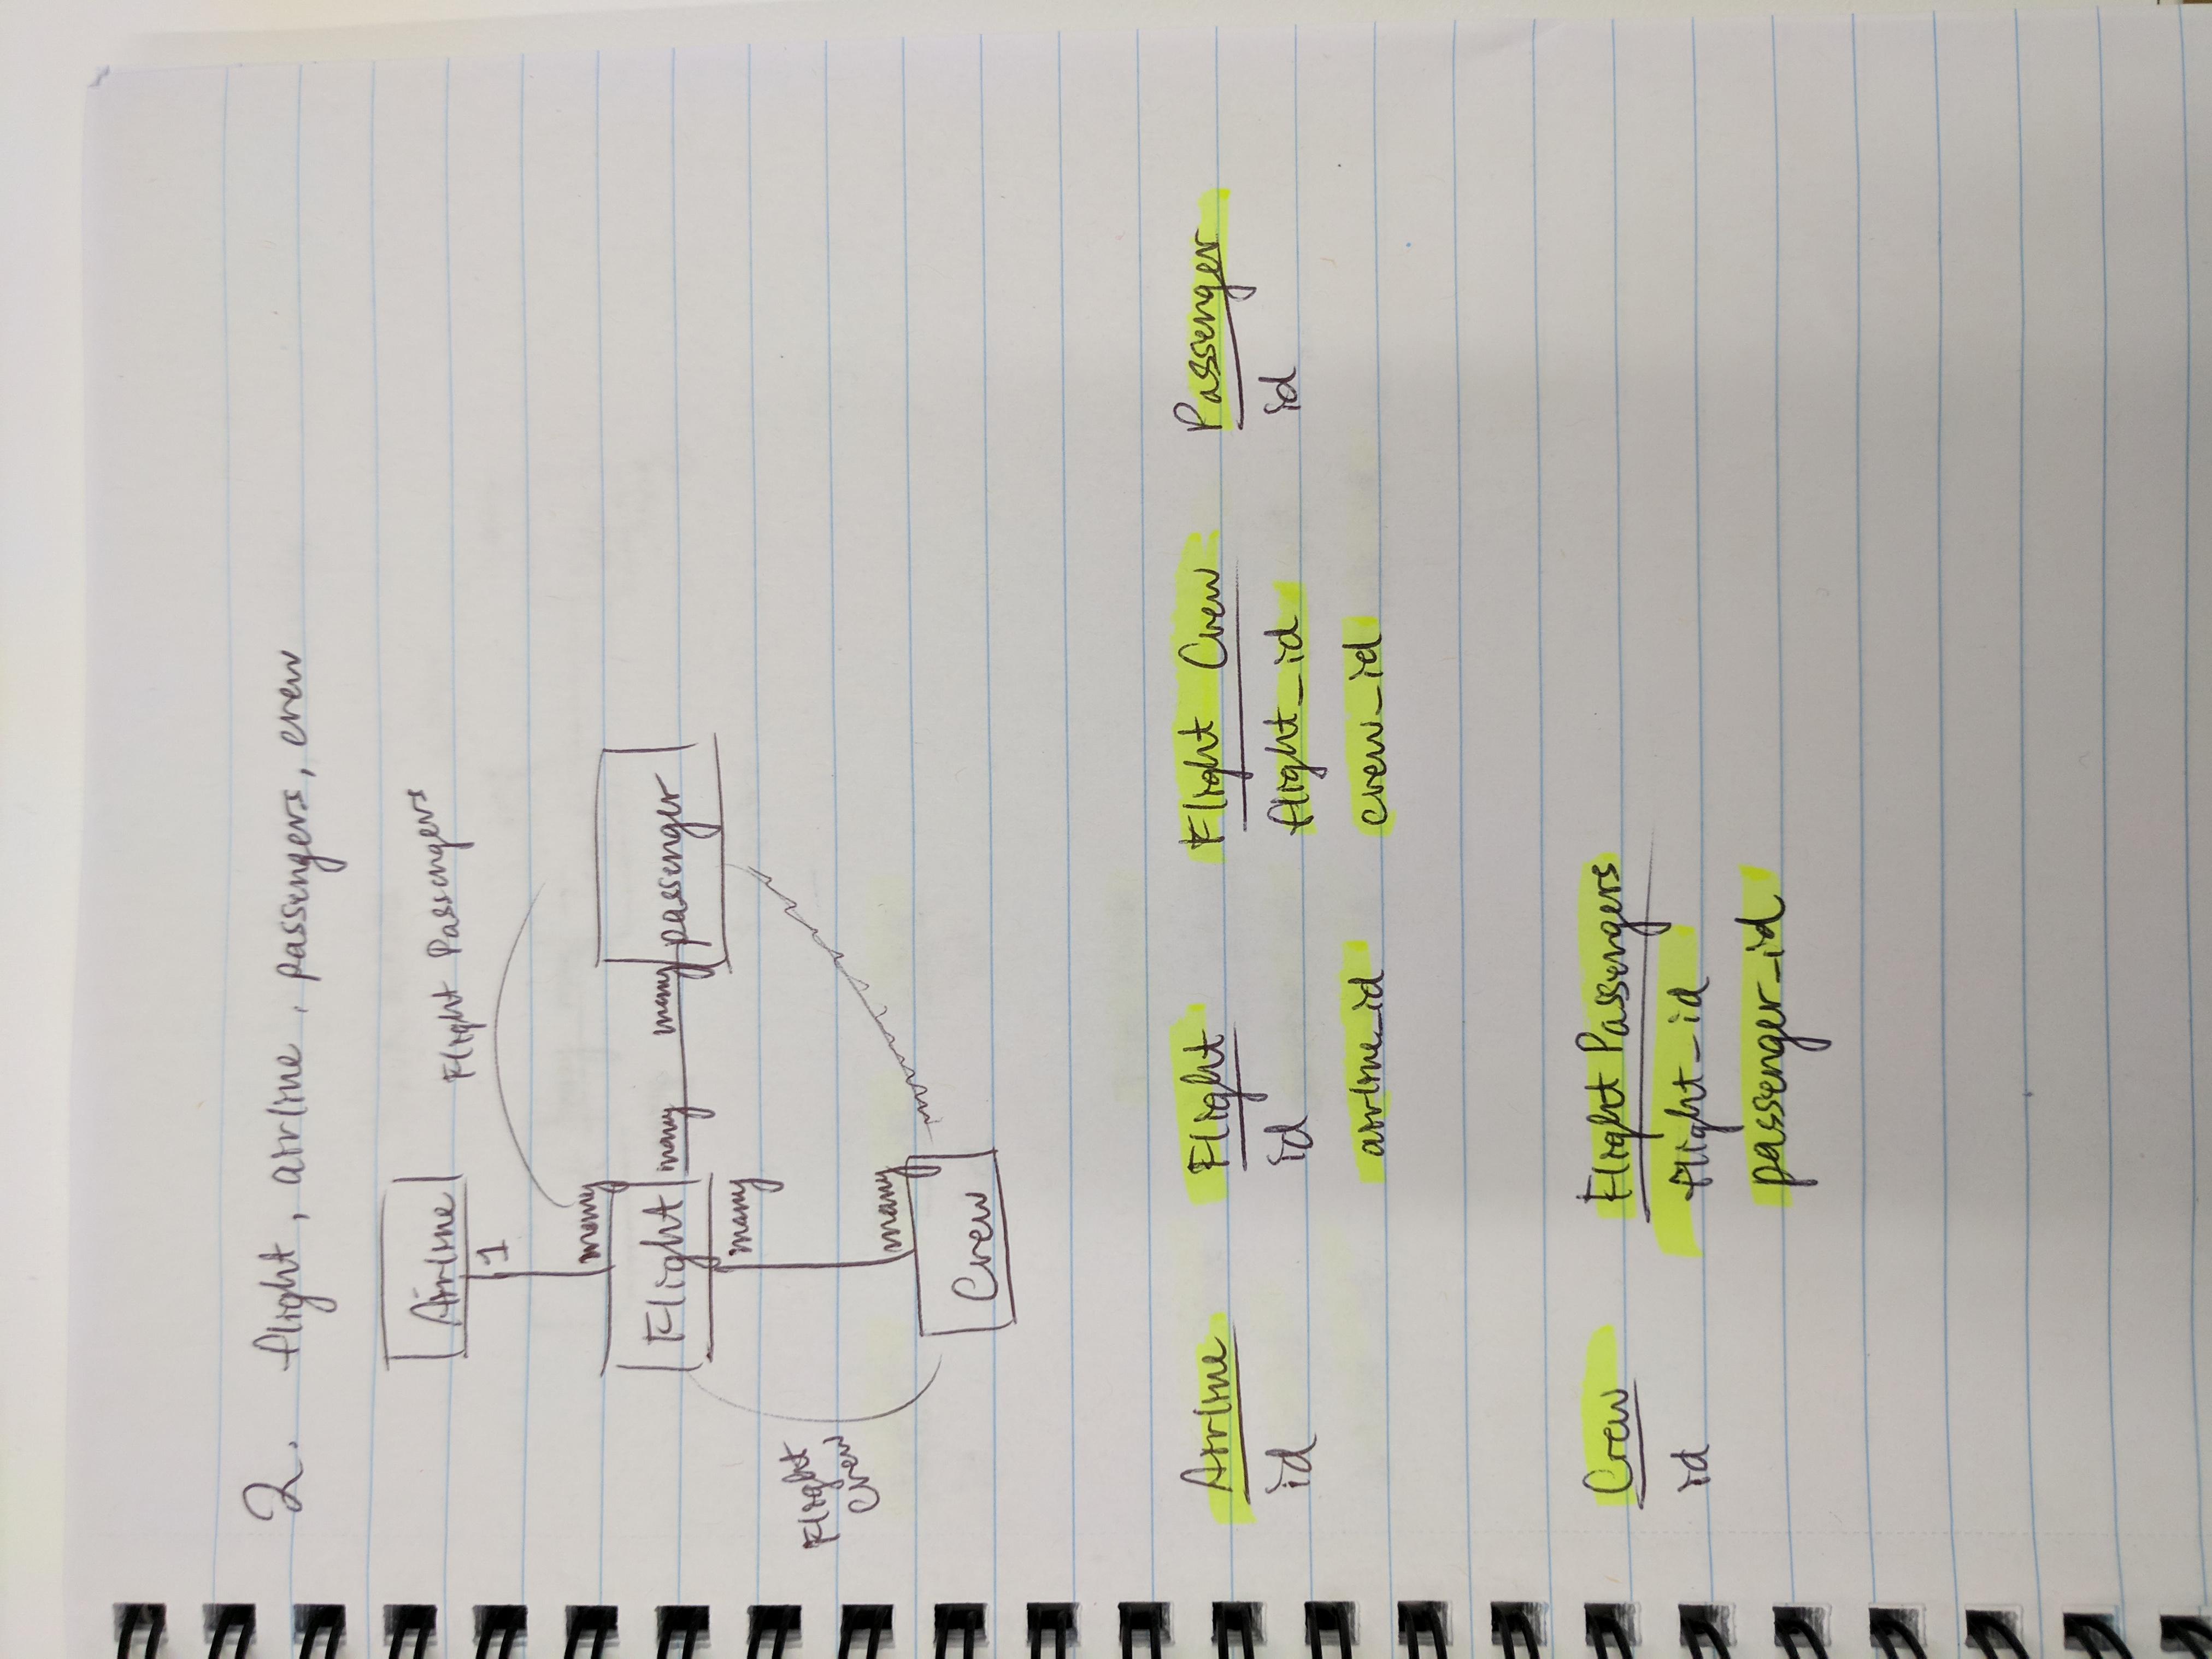 2. flight, airline, passengers, crew
Flight Passengers
Airline
1
many
Flight
many
many
passenger
many
many
Crew
Flight
Crew
Airline
id
Flight
id
airline_id
Flight Crew
flight_id
crew_id
Passenger
id
Crew
id
Flight Passengers
flight_id
passenger_id